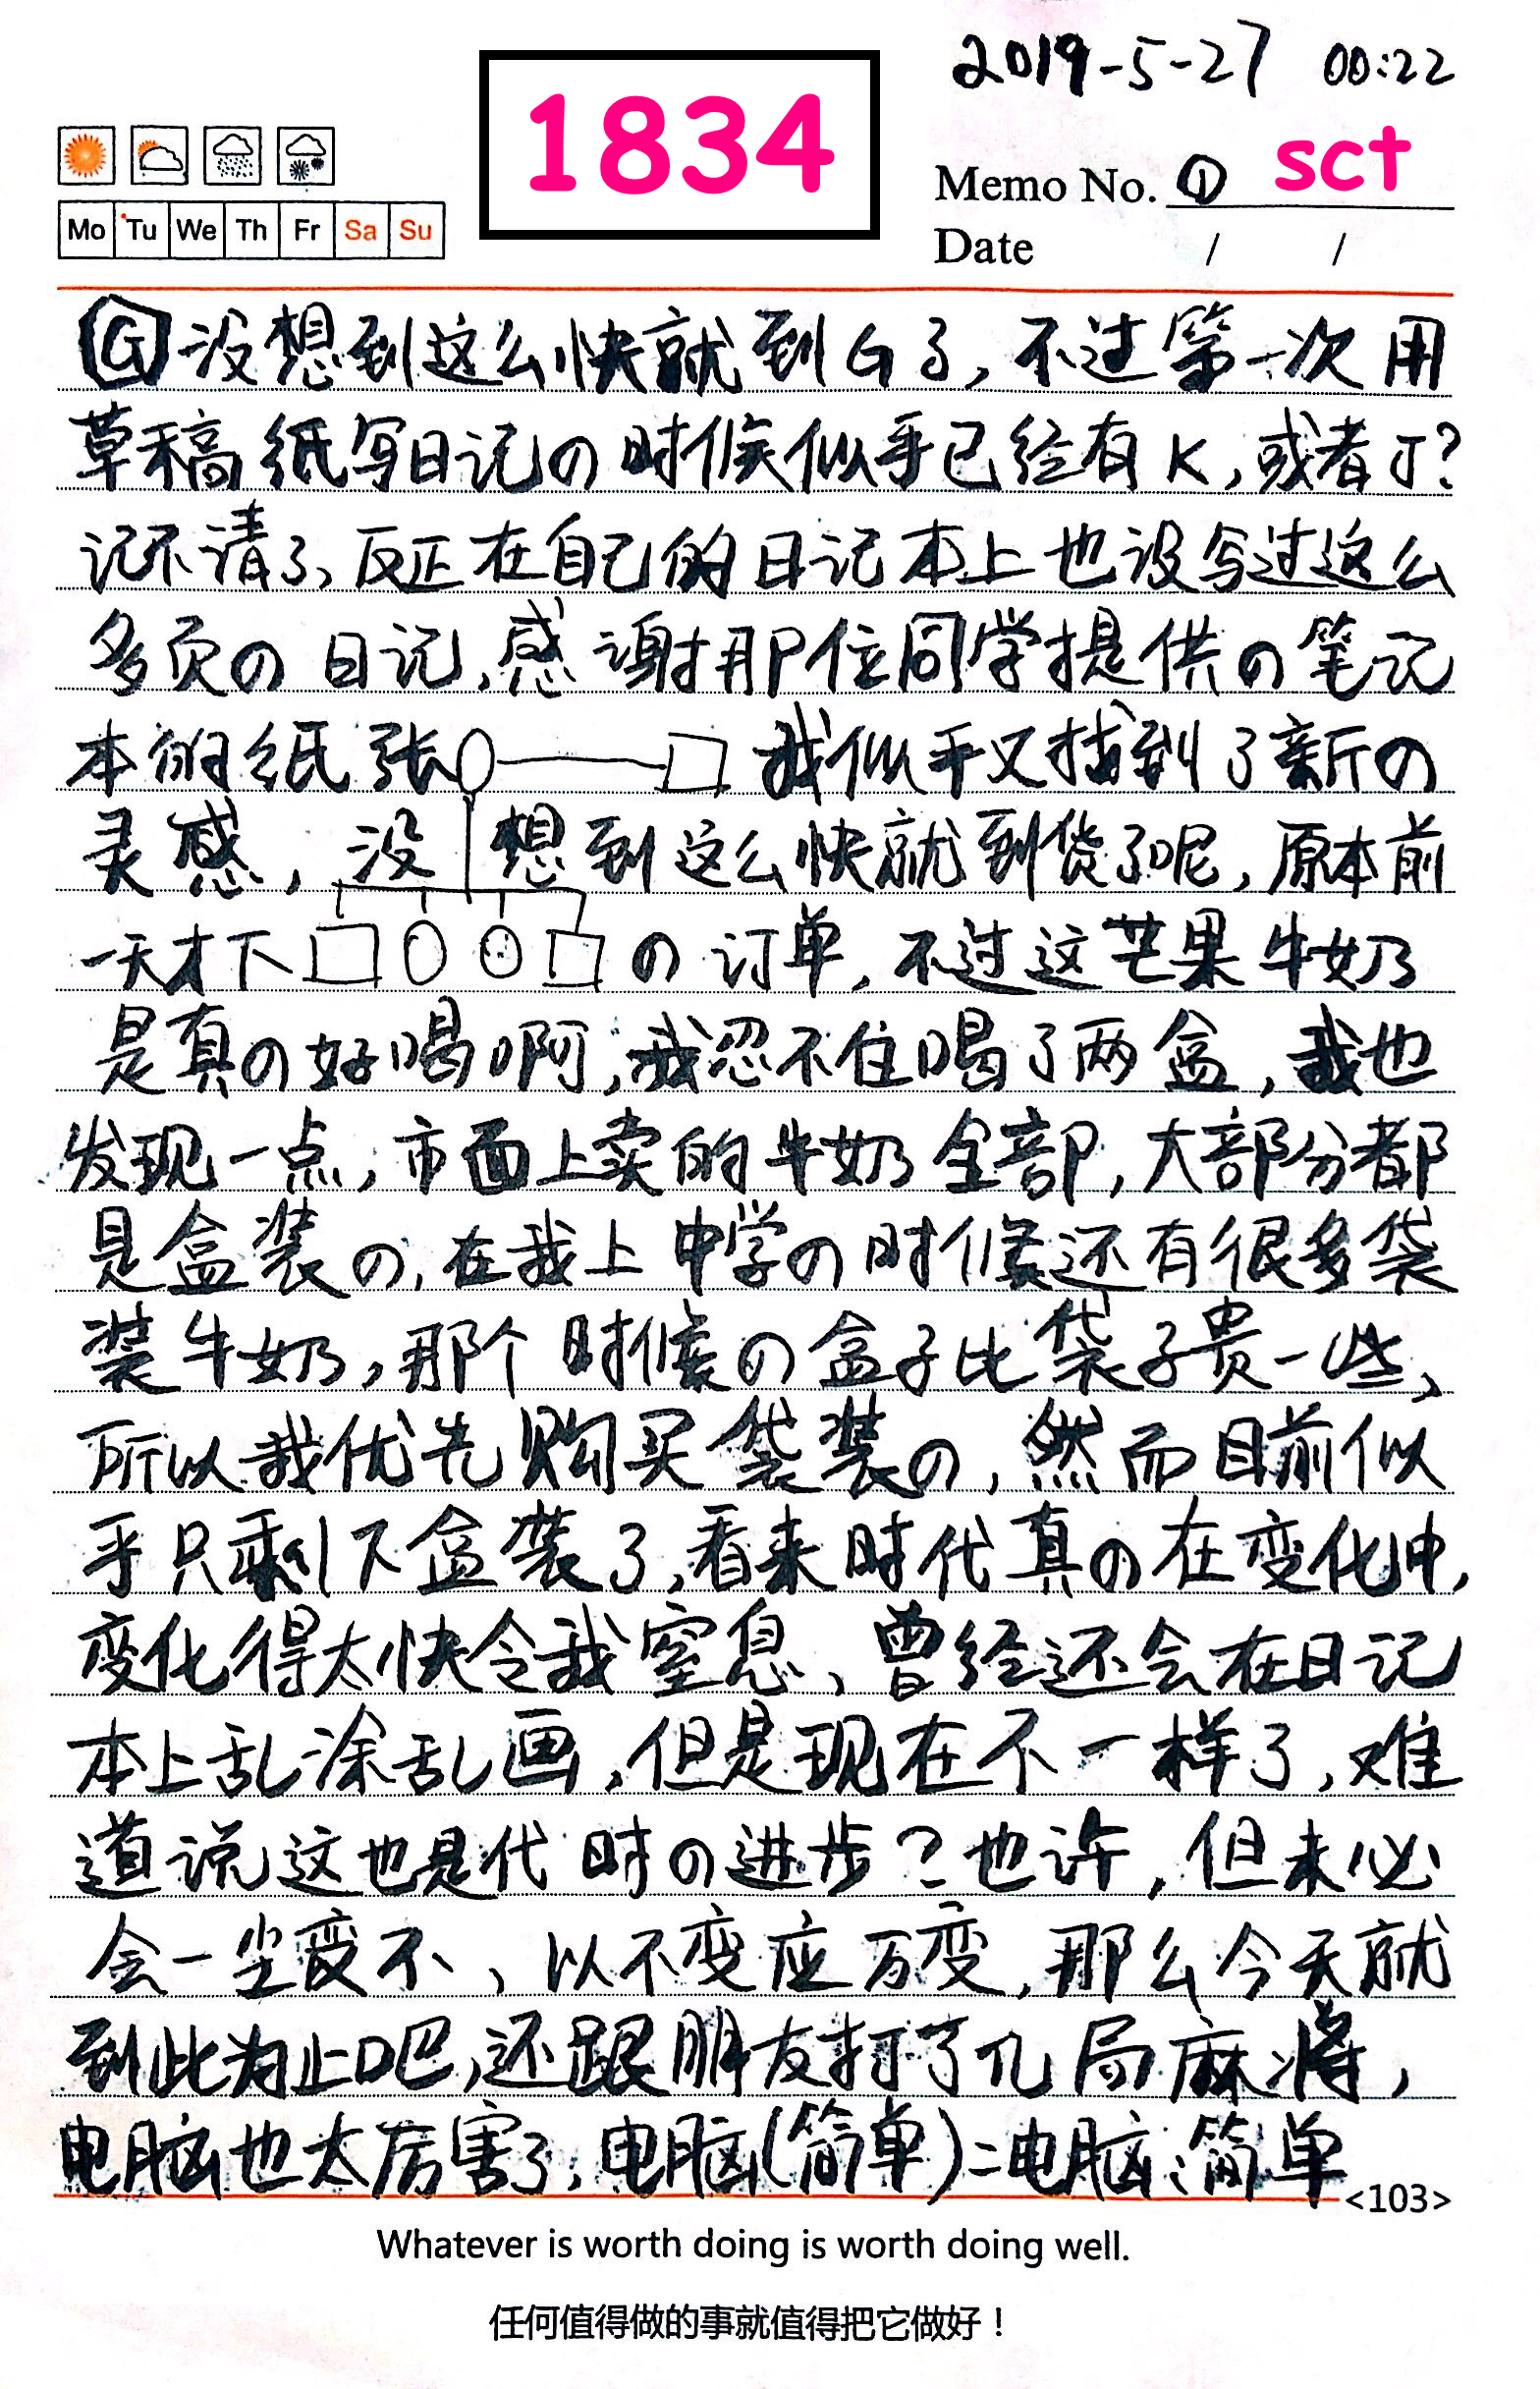 2019-5-27 00:22
1834
Memo No. ① sct
Mo Tu We Th Fr Sa Su
Date / /
G 没想到这么快就到G了,不过第一次用
草稿纸写日记の时候似乎已经有K,或者J?
记不请了,反正在自己的日记本上也没写过这么
多页の日记,感谢那位同学提供の笔记
本的纸张 我似乎又找到了新の
灵感,没想到这么快就到货了呢,原本前
一天才下 の订单,不过这芒果牛奶
是真の好喝啊,我忍不住喝了两盒,我也
发现一点,市面上卖的牛奶全部,大部分都
是盒装の,在我上中学の时候还有很多袋
装牛奶,那个时候の盒子比袋子贵一些,
所以我优先购买袋装の,然而目前似
乎只剩下盒装了,看来时代真の在变化中,
变化得太快令我窒息、曾经还会在日记
本上乱涂乱画,但是现在不一样了,难
道说这也是代时の进步?也许,但未必
会一尘变不、以不变应万变,那么今天就
到此为止吧,还跟朋友打了几局麻将,
电脑也太厉害了,电脑(简单)=电脑:简单
<103>
Whatever is worth doing is worth doing well.
任何值得做的事就值得把它做好!